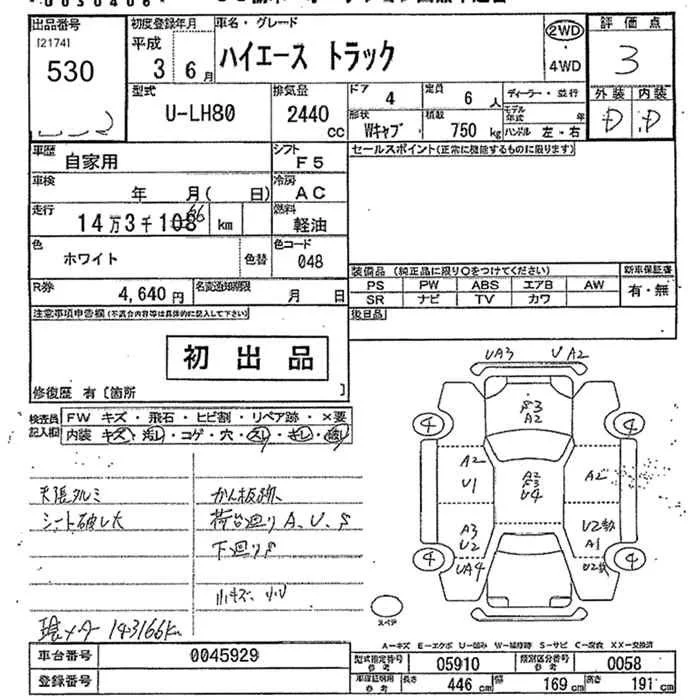 出品番号
[2174]
530
初度登録年月
平成
3 6月
車名・グレード
ハイエース トラック
2WD
・
4WD
評価点
3
外装 内装
D D
型式
U-LH80
排気量
2440
CC
ドア
4
定員
6人
ディーラー・並行
形状
Wキャブ
積載
750kg
モデル年式 年
ハンドル 左・右
車歴
自家用
シフト
F5
セールスポイント(正常に機能するものに限ります)
車検
年 月( 日)
冷房
AC
走行
14万3千108 66 km
燃料
軽油
色
ホワイト
色替
色コード
048
R券
4,640円
名変通知期限
月 日
装備品 (純正品に限り○をつけてください)
PS PW ABS エアB AW
SR ナビ TV カワ
新車保証書
有・無
後日品
注意事項申告欄(不具合内容等は具体的に記入して下さい)
初出品
修復歴 有〔箇所 〕
検査員記入欄
FW キズ・飛石・ヒビ割・リペア跡・×要
内装 キズ・汚レ・コゲ・穴・スレ・キレ・
天張タルミ
シート破レ大
かん板跡
荷台廻りA、U、S
下廻りS
小キズ、小U
143166km
UA3 UA2
F3
A2
4 4
A2
U1
A2
F3
U4
A2
A3
U2
UA4
U2
A1
U2
4 4
スペア
A-キズ E-エクボ U-凹み W-補修跡 S-サビ C-腐食 XX-交換済
車台番号
0045929
登録番号
型式指定番号
参考
05910
類別区分番号
参考
0058
車庫証明用
参考
長さ 446cm
幅 169cm
高さ 191cm